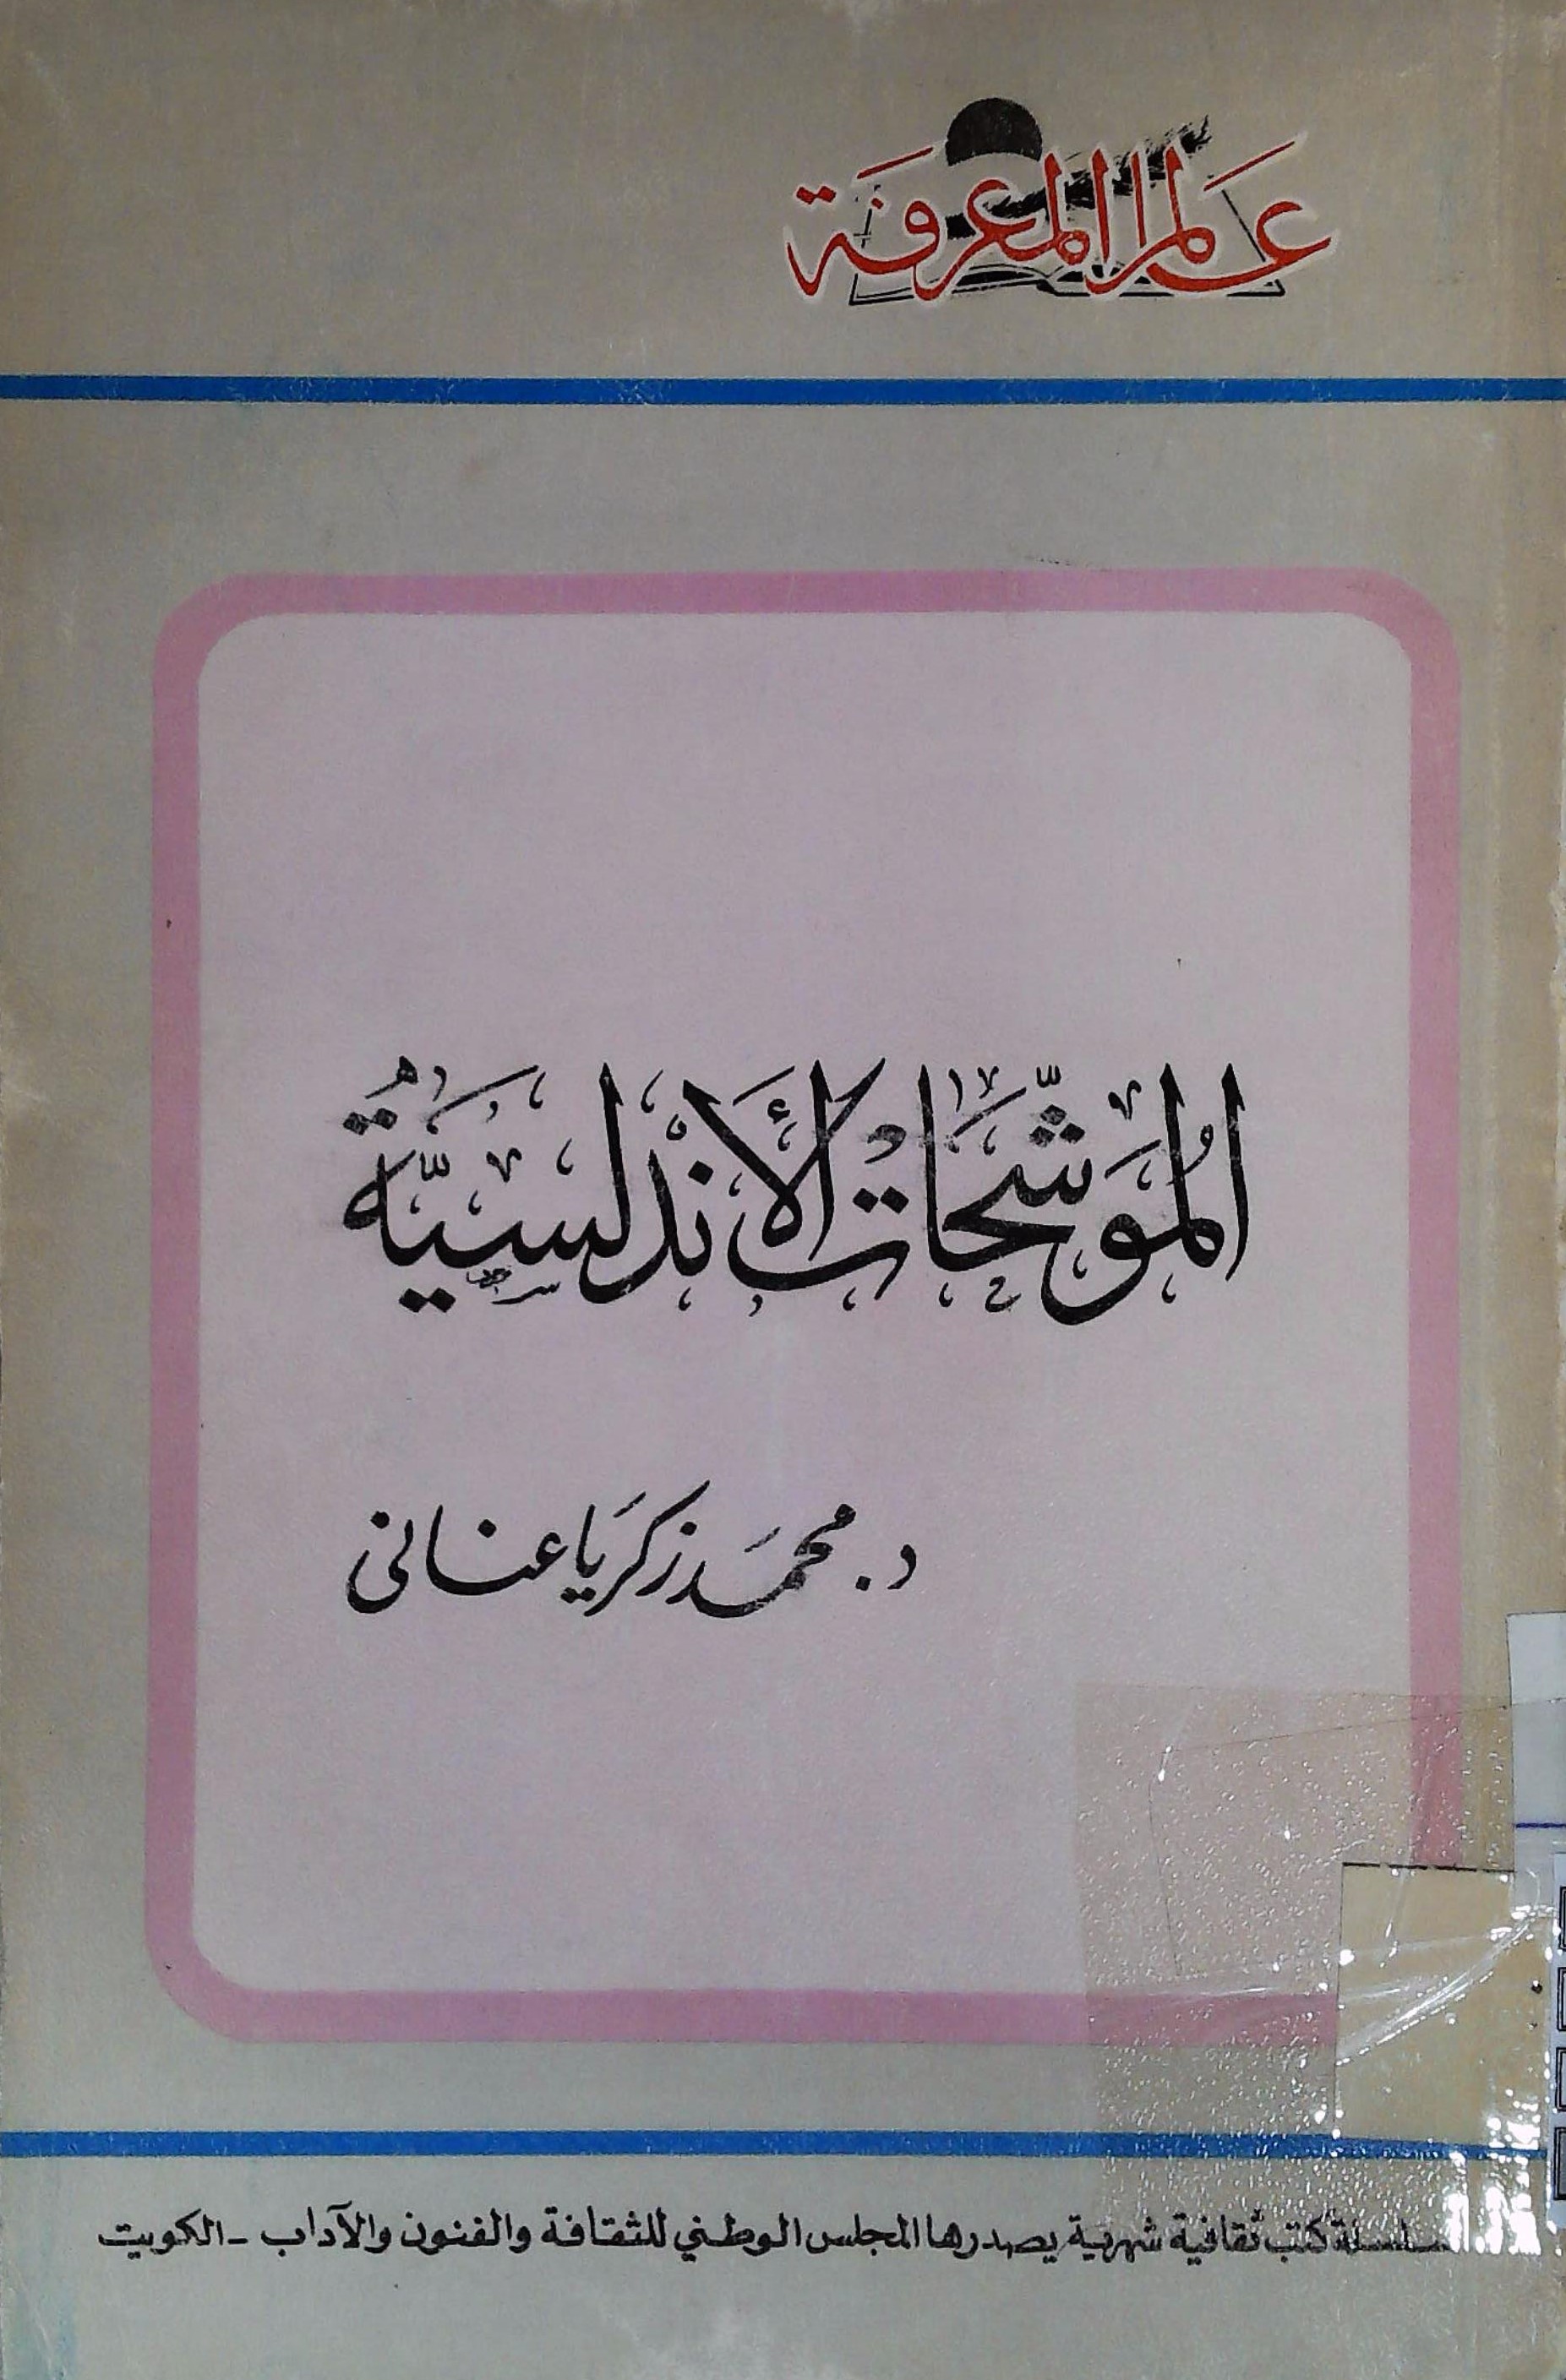 عالم المعرفة
الموشّحات الأندلسيّة
د. محمد زكريا عناني
سلسلة كتب ثقافية شهرية يصدرها المجلس الوطني للثقافة والفنون والآداب - الكويت